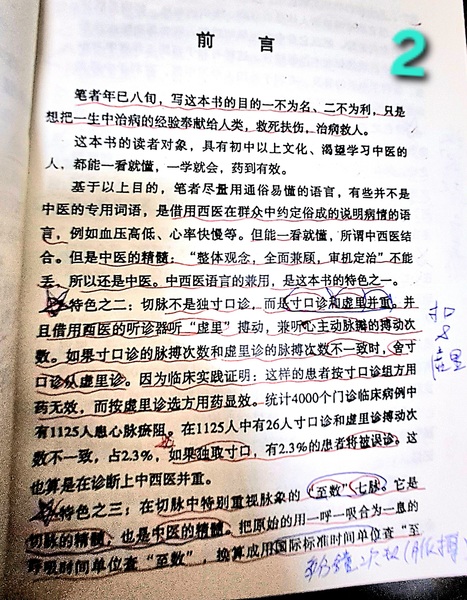 2
前 言
笔者年已八旬，写这本书的目的一不为名、二不为利，只是
想把一生中治病的经验奉献给人类，救死扶伤，治病救人。
这本书的读者对象，具有初中以上文化、渴望学习中医的
人，都能一看就懂，一学就会，药到有效。
基于以上目的，笔者尽量用通俗易懂的语言，有些并不是
中医的专用词语，是借用西医在群众中约定俗成的说明病情的语
言，例如血压高低、心率快慢等。但能一看就懂，所谓中西医结
合。但是中医的精髓：“整体观念，全面兼顾，审机定治”不能
丢，所以还是中医。中西医语言的兼用，是这本书的特色之一。
特色之二：切脉不是独寸口诊，而是寸口诊和虚里并重。并
且借用西医的听诊器听“虚里”搏动，兼听心主动脉瓣的搏动次
数。如果寸口诊的脉搏次数和虚里诊的脉搏次数不一致时，舍寸
口诊从虚里诊。因为临床实践证明：这样的患者按寸口诊组方用
药无效，而按虚里诊选方用药显效。统计4000个门诊临床病例中
有1125人患心脉瘀阻。在1125人中有26人寸口诊和虚里诊搏动次
数不一致，占2.3%，如果独取寸口，有2.3%的患者将被误诊。这
也算是在诊断上中西医并重。
特色之三：在切脉中特别重视脉象的“至数”七脉。它是
切脉的精髓，也是中医的精髓。把原始的用一呼一吸合为一息的
呼吸时间单位查“至数”，换算成用国际标准时间单位查“至